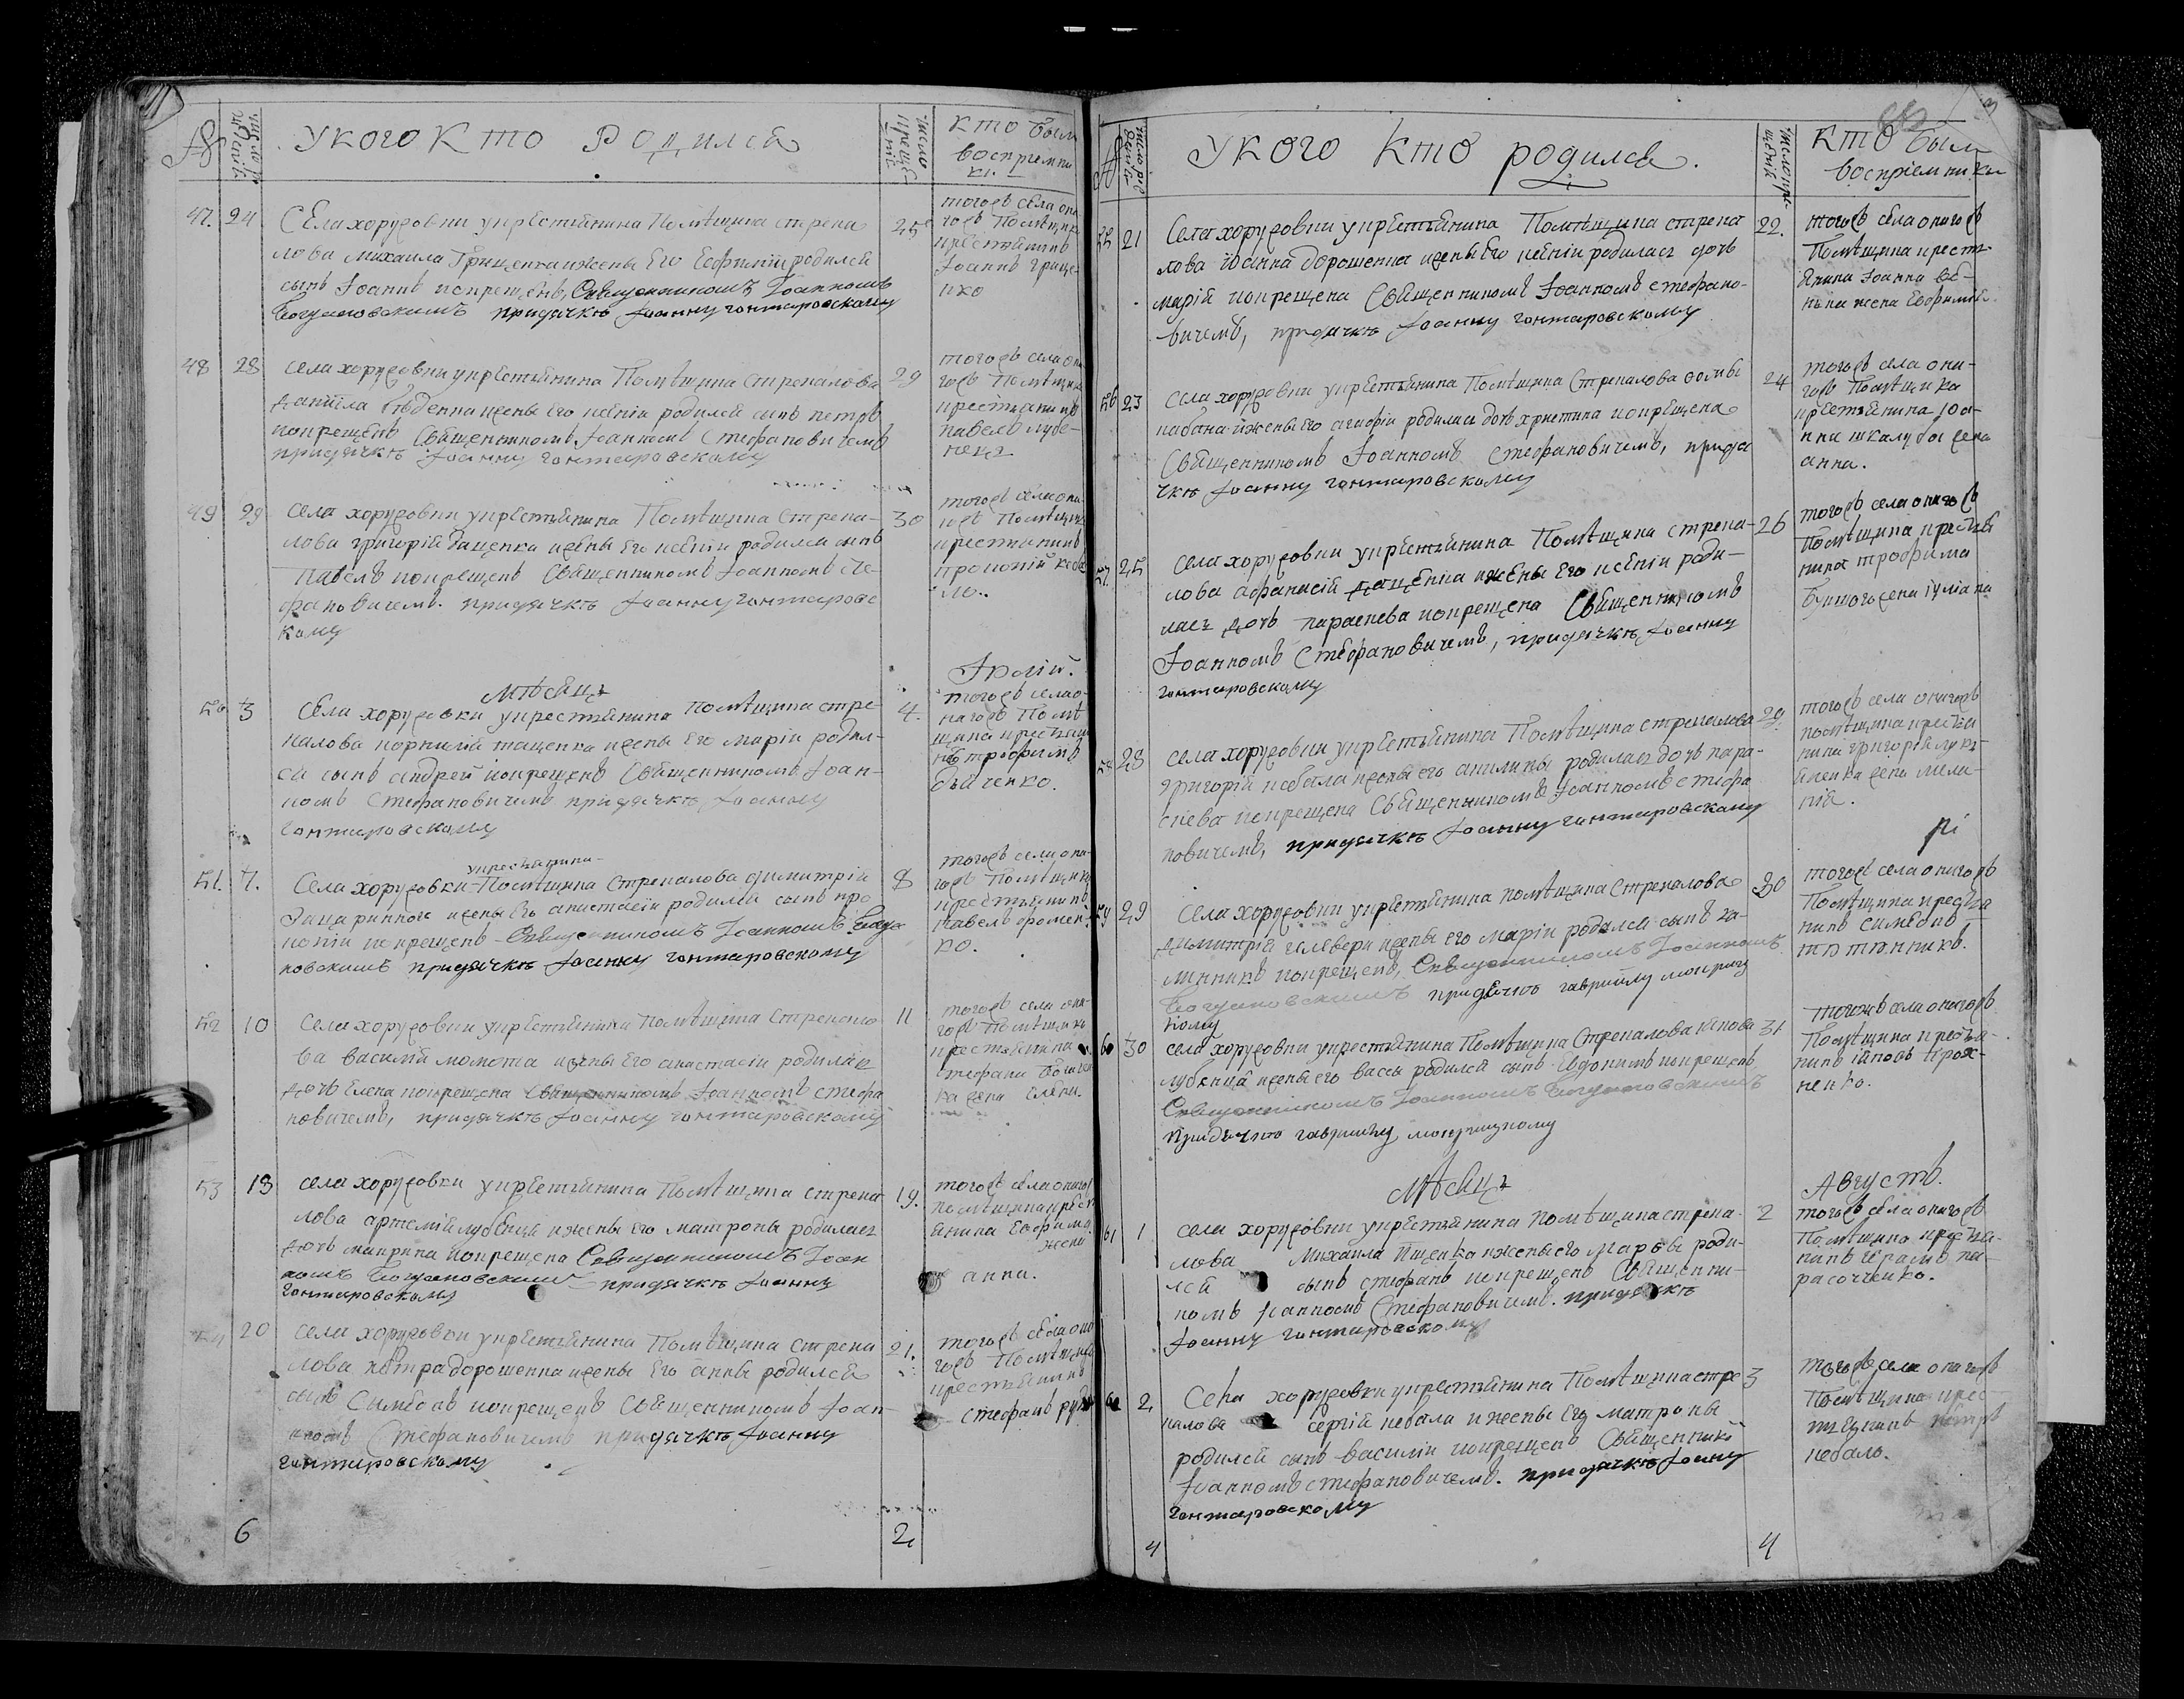 №
число рожденія
У КОГО КТО РОДИЛСЯ
число крещенія
кто былъ
воспріемни
ки.
47. 24
Села хоружовки у крестьянина Помѣщика стрека
лова михаила Грищенка и жены Его Евфиміи родился
сынъ Іоаннъ и крещенъ, Священникомъ Іоанномъ
Богдановскимъ при дячкѣ Іоанну гонтаровскому
25
тогожъ села она
гожъ Помѣщика
крестьянинъ
Іоаннъ грище
нко
48 28
села хоружовки у крестьянина Помѣщика Стрекалова
даніила жены Его ксеніи родился сынъ петръ
и крещенъ Священникомъ Іоанномъ Стефановичемъ
при дячкѣ Іоанну гонтаровскому
29
тогожъ села она
гожъ Помѣщика
крестьянинъ
павелъ лубе-
нецъ
49 29
села хоружовки у крестьянина Помѣщика Стрека-
лова григорій даценка и жены Его ксеніи родился сынъ
Павелъ и крещенъ Священникомъ Іоанномъ Сте-
фановичемъ. при дячкѣ Іоанну гонтаровс
кому
30
тогожъ села она
гожъ Помѣщика
крестьянинъ
прокопій
Мѣсяцъ
Іюлій.
50 3
Села хоружовки у крестьянина помѣщика стре
калова корнилій тащенка и жены Его маріи родил-
ся сынъ андрей и крещенъ Священникомъ Іоан-
номъ Стефановичемъ при дячкѣ Іоанну
гонтаровскому
4.
тогожъ села о-
нагожъ Помѣ
щика крестьян
нъ трофимъ
дяченко.
51. 7.
у крестьянина
Села хоружовки Помѣщика Стрекалова димитрій
и жены Его анастасіи родился сынъ про
копій и крещенъ Священникомъ Іоанномъ Богда
новскимъ при дячкѣ Іоанну гонтаровскому
8
тогожъ села она
гожъ Помѣщика
крестьянинъ
павелъ фомен
ко.
52 10
Села хоружовки у крестьянина Помѣщика Стрекало
ва василій момота и жены Его анастасіи родилась
дочь Елена и крещена Священникомъ Іоанномъ стефа
новичемъ, при дячкѣ Іоанну гонтаровскому
11
тогожъ села она
гожъ Помѣщика
крестьянина
стефана
ка жена Елена.
53 18
села хоружовки у крестьянина Помѣщика стрека
лова артемій лубенца и жены Его матроны родилась
дочь макрина и крещена Священникомъ Іоан
номъ Богдановскимъ при дячкѣ Іоанну
гонтаровскому
19.
тогожъ села онагож
помѣщика крест
янина Евфима
жена
анна.
54 20
села хоружовки у крестьянина Помѣщика стрека
лова петра дорошенка и жены Его анны родился
сынъ Сымеонъ и крещенъ Священникомъ Іоан
номъ Стефановичемъ при дячкѣ Іоанну
гонтаровскому
21.
тогожъ села она
гожъ Помѣщика
крестьянинъ
Стефанъ
6
2
№
У КОГО КТО РОДИЛСЯ.
КТО былъ
воспріемники
55 21
Села хоружовки у крестьянина Помѣщика стрека
лова іоанна дорошенка и жены Его ксеніи родилась дочь
марія и крещена Священникомъ Іоанномъ стефано-
вичемъ, при дячкѣ Іоанну гонтаровскому
22.
тогожъ села онагожъ
Помѣщика крест-
янина Іоанна
жена Евфимія.
56 23
села хоружовки у крестьянина Помѣщика Стрекалова фомы
кабана и жены Его агафіи родилась дочь христина и крещена
Священникомъ Іоанномъ Стефановичемъ, при дя
чкѣ Іоанну гонтаровскому
24
тогожъ села она-
гожъ Помѣщика
крестьянина Іоа-
нна шкалубы жена
анна.
57. 25
села хоружовки у крестьянина Помѣщика стрека-
лова афанасій даценка и жены Его ксеніи роди-
лась дочь параскева и крещена Священникомъ
Іоанномъ Стефановичемъ, при дячкѣ Іоанну
гонтаровскому
26
тогожъ села онагожъ
Помѣщика крестья
нина трофима
жена іуліана
58 28
села хоружовки у крестьянина Помѣщика стрекалова
григорій кебала и жены его акилины родилась дочь пара-
скева и крещена Священникомъ Іоанномъ стефа
новичемъ, при дячкѣ Іоанну гонтаровскому
29.
тогожъ села онагожъ
помѣщика крестья
нина григорія лукі
яненка жена мела-
нія.
59 29
Села хоружовки у крестьянина помѣщика Стрекалова
димитрія и жены его маріи родился сынъ ка-
линникъ и крещенъ, Священникомъ Іоанномъ
Богдановскимъ при дячкѣ гавріилу мокриц
кому
30
тогожъ села онагожъ
Помѣщика крестья
нинъ Симеонъ
60 30
села хоружовки у крестьянина Помѣщика Стрекалова
лубенца и жены его вассы родился сынъ Евдокимъ и крещенъ
Священникомъ Іоанномъ Богдановскимъ
при дячкѣ гавріилу мокрицкому
31
тогожъ села онагожъ
Помѣщика крестья-
нинъ
ненко.
Мѣсяцъ
Августъ.
61 1
села хоружовки у крестьянина помѣщика стрека-
лова Михаила Ищенка и жены его Марфы роди-
лся сынъ стефанъ и крещенъ Священни-
комъ Іоанномъ Стефановичемъ. при дячкѣ
Іоанну гонтаровскому
2
тогожъ села онагожъ
Помѣщика крестья-
нинъ па-
расоченко.
62 2
Села хоружовки у крестьянина Помѣщика стре
калова сергій кебала и жены Его матроны
родился сынъ василій и крещенъ Священни
Іоанномъ стефановичемъ. при дячкѣ Іоанну
гонтаровскому
3
тогожъ села онагожъ
Помѣщика крес
тьянинъ петръ
кебало.
4
4